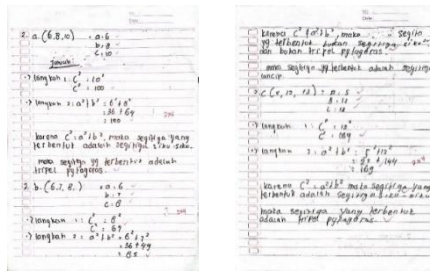 2. a. (6,8,10) : a = 6
b = 8
c = 10
jawab:
·) langkah 1 : c² = 10²
c² = 100
·) langkah 2 : a² + b² = 6² + 8²
= 36 + 64
= 100
karena c² = a² + b², maka segitiga yang
terbentuk adalah segitiga siku siku.
maka segitiga yg terbentuk adalah
tripel pythagoras.
2. b. (6,7,8) : a = 6
b = 7
c = 8
·) langkah 1 : c² = 8²
c² = 64
·) langkah 2 : a² + b² = 6² + 7²
= 36 + 49
= 85
karena c² ≠ a² + b², maka segitiga
yg terbentuk bukan segitiga siku
dan bukan tripel pythagoras.
maka segitiga yg terbentuk adalah segitiga
lancip.
2. c (5, 12, 13) : a = 5
b = 12
c = 13
·) langkah 1 : c² = 13²
c² = 169
·) langkah 2 : a² + b² = 5² + 12²
= 25 + 144
= 169
karena c² = a² + b² maka segitiga yang
terbentuk adalah segitiga siku-siku
maka segitiga yang terbentuk
adalah tripel pythagoras.